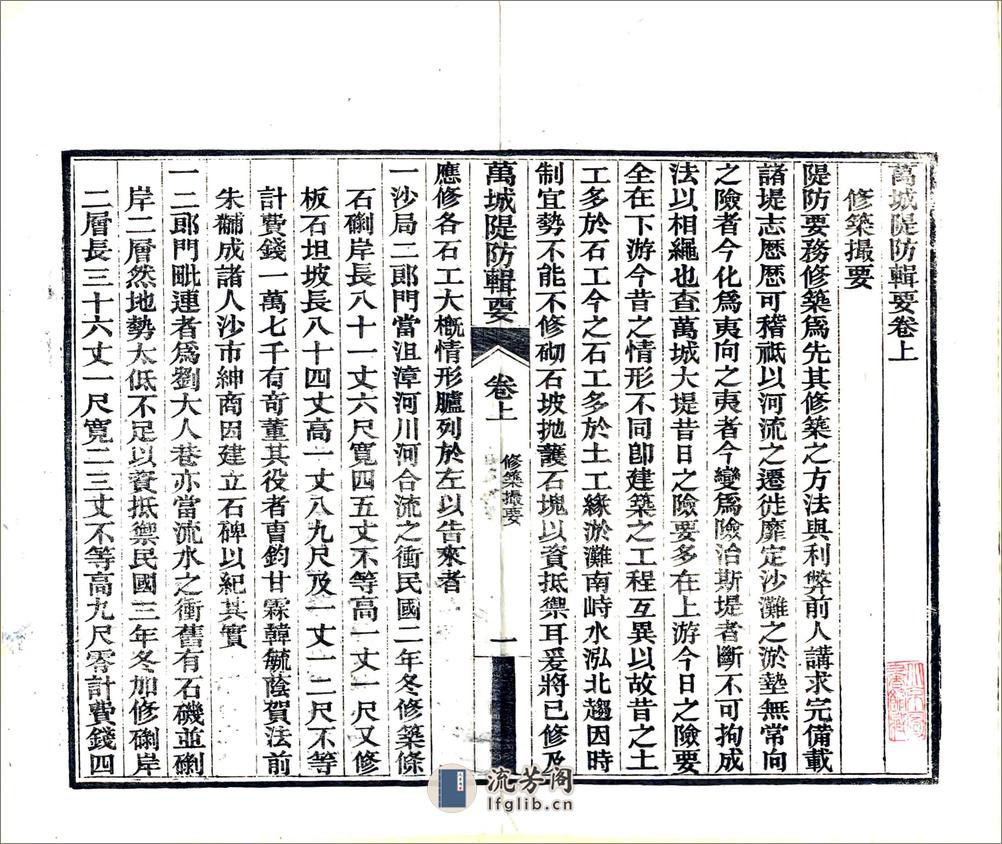 萬城隄防輯要卷上
修築撮要
隄防要務修築爲先其修築之方法與利弊前人講求完備載
諸堤志歷歷可稽祗以河流之遷徙靡定沙灘之淤墊無常向
之險者今化爲夷向之夷者今變爲險治斯堤者斷不可拘成
法以相繩也查萬城大堤昔日之險要多在上游今日之險要
全在下游今昔之情形不同卽建築之工程互異以故昔之土
工多於石工今之石工多於土工緣淤灘南峙水泓北趨因時
制宜勢不能不修砌石坡拋護石塊以資抵禦耳爰將已修及
萬城隄防輯要
卷上
修築撮要
一
應修各石工大槪情形臚列於左以告來者
一沙局二郎門當沮漳河川河合流之衝民國二年冬修築條
石磡岸長八十一丈六尺寬四五丈不等高一丈一尺又修
板石坦坡長八十四丈高一丈八九尺及一丈一二尺不等
計費錢一萬七千有奇董其役者曺鈞甘霖韓毓蔭賀法前
朱黼成諸人沙市紳商因建立石碑以紀其實
一二郎門毗連者爲劉大人巷亦當流水之衝舊有石磯並磡
岸二層然地勢太低不足以資抵禦民國三年冬加修磡岸
二層長三十六丈一尺寬二三丈不等高九尺零計費錢四
流芳阁
lfglib.cn